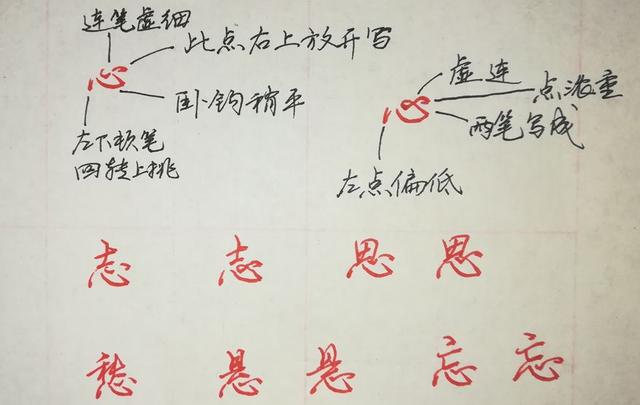 连笔虚细
此点右上放开写
心
卧钩稍平
左下顿笔
回转上挑
虚连
点浓重
心
两笔写成
左点偏低
志 志 思 思
愁 悬 悬 忘 忘